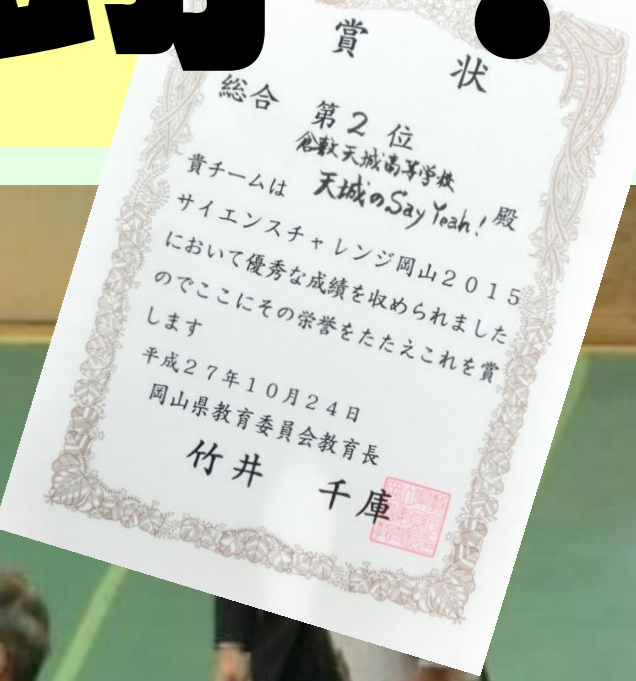 賞 状
総合 第2位
倉敷天城高等学校
貴チームは 天城のSay Yeah! 殿
サイエンスチャレンジ岡山2015
において優秀な成績を収められました
のでここにその栄誉をたたえこれを賞
します
平成27年10月24日
岡山県教育委員会教育長
竹井 千庫